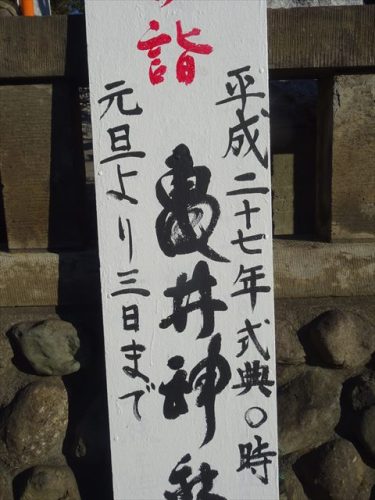 詣
平成二十七年式典〇時
亀井神社
元旦より三日まで